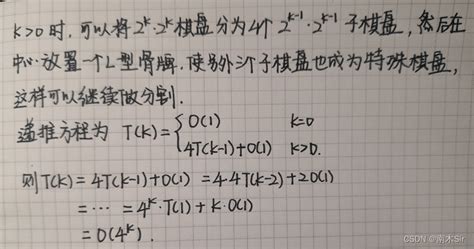 k>0时,可以将2^k·2^k棋盘分为4个2^{k-1}·2^{k-1}子棋盘,然后在
中心放置一个L型骨牌.使另外3个子棋盘也成为特殊棋盘,
这样可以继续做分割.
递推方程为 T(k)={O(1) k=0
4T(k-1)+O(1) k>0.
则T(k)=4T(k-1)+O(1)=4·4T(k-2)+2O(1)
=…=4^k·T(1)+k·O(1)
=O(4^k).
CSDN @南木Sir